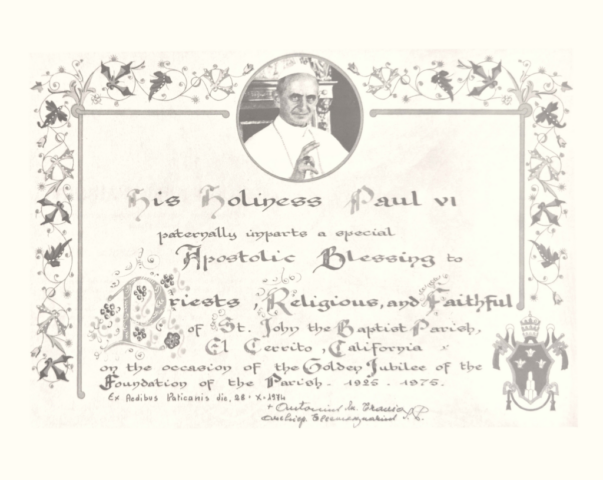 His Holiness Paul VI
paternally imparts a special
Apostolic Blessing to
Priests, Religious, and Faithful
of St. John the Baptist Parish,
El Cerrito, California
on the occasion of the Golden Jubilee of the
Foundation of the Parish. 1925 - 1975.
Ex Aedibus Vaticanis die, 28 - X - 1974